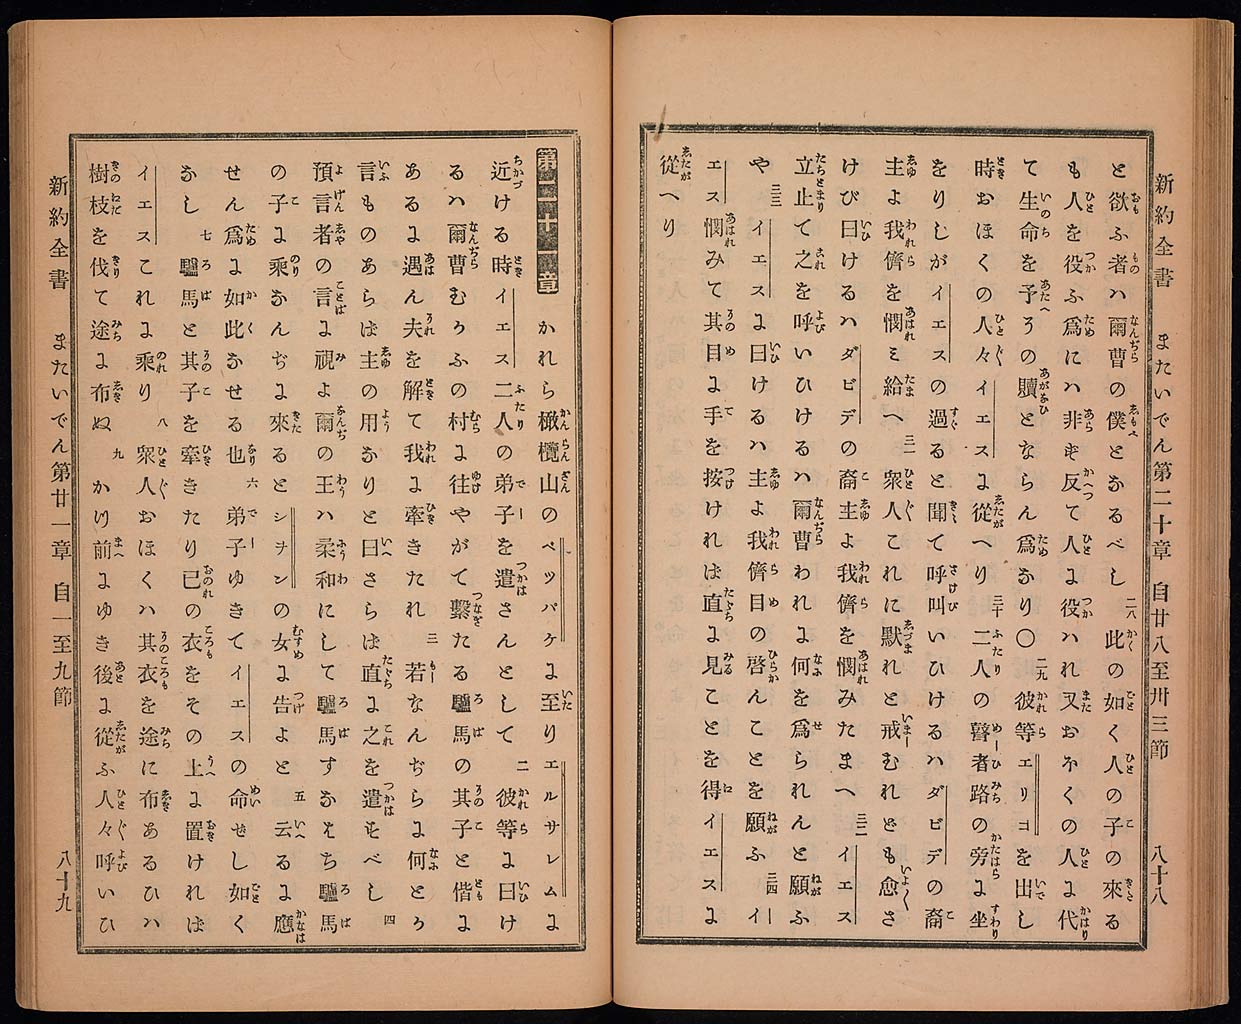 新約全書　またいでん第二十章　自廿八至卅三節　八十八
と欲ふ者ハ爾曹の僕となるべし二八此の如く人の子の來る
も人を役ふ爲にハ非ず反て人に役ハれ又おほくの人に代
て生命を予その贖とならん爲なり〇二九彼等エリコを出し
時おほくの人々イエスに從へり三十二人の瞽者路の旁に坐
をりしがイエスの過ると聞て呼叫いひけるハダビデの裔
主よ我儕を憫ミ給へ三一衆人これに默れと戒むれども愈さ
けび曰けるハダビデの裔主よ我儕を憫みたまへ三二イエス
立止て之を呼いひけるハ爾曹われに何を爲られんと願ふ
や三三イエスに曰けるハ主よ我儕目の啓んことを願ふ三四イ
エス憫みて其目に手を按ければ直に見ことを得イエスに
從へり
第二十一章　かれら橄欖山のベツパゲに至りエルサレムに
近ける時イエス二人の弟子を遣さんとして二彼等に曰け
るハ爾曹むかふの村に往やがて繫たる驢馬の其子と偕に
あるに遇ん夫を解て我に牽きたれ三若なんぢらに何とか
言ものあらば主の用なりと曰さらば直に之を遣すべし四
預言者の言に視よ爾の王ハ柔和にして驢馬すなはち驢馬
の子に乘なんぢに來るとシヲンの女に告よと五云るに應
せん爲に如此なせる也六弟子ゆきてイエスの命せし如く
なし七驢馬と其子を牽きたり己の衣をその上に置ければ
イエスこれに乘り八衆人おほくハ其衣を途に布あるひハ
樹枝を伐て途に布ぬ九かつ前にゆき後に從ふ人々呼いひ
新約全書　またいでん第廿一章　自一至九節　八十九